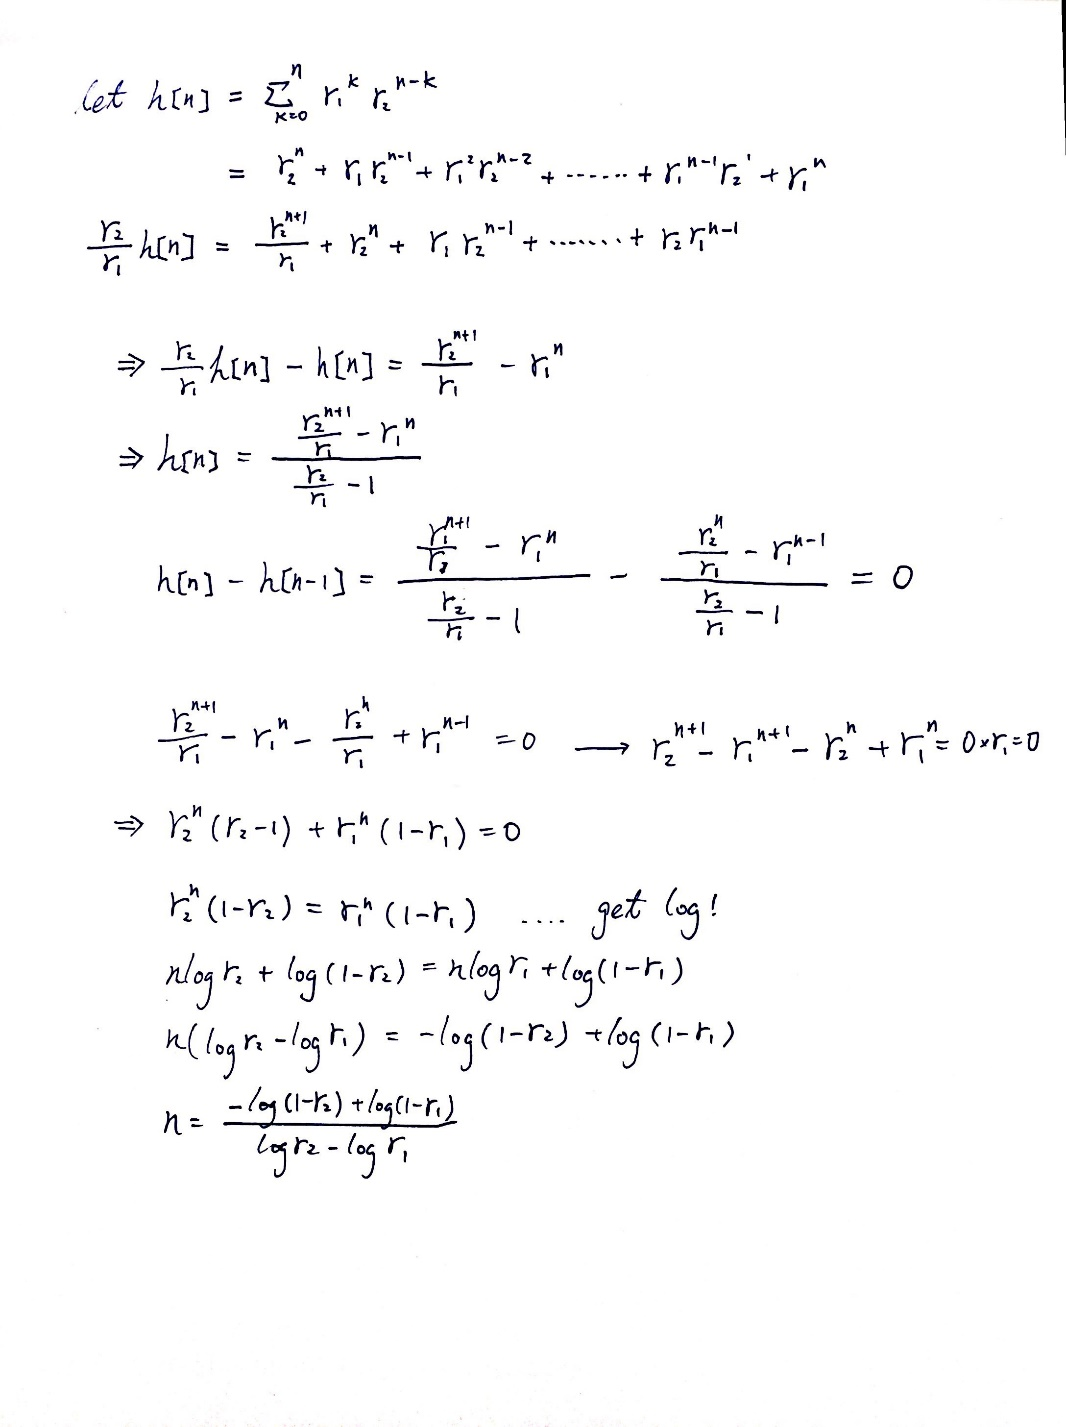 Let h[n] = Σ_{k=0}^{n} r₁^k r₂^{n-k}
= r₂^n + r₁ r₂^{n-1} + r₁² r₂^{n-2} + ...... + r₁^{n-1} r₂' + r₁^n
r₂/r₁ h[n] = r₂^{n+1}/r₁ + r₂^n + r₁ r₂^{n-1} + ....... + r₂ r₁^{n-1}
⇒ r₂/r₁ h[n] - h[n] = r₂^{n+1}/r₁ - r₁^n
⇒ h[n] = (r₂^{n+1}/r₁ - r₁^n)/(r₂/r₁ - 1)
h[n] - h[n-1] = (r₁^{n+1}/r₂ - r₁^n)/(r₂/r₁ - 1) - (r₂^n/r₁ - r₁^{n-1})/(r₂/r₁ - 1) = 0
r₂^{n+1}/r₁ - r₁^n - r₂^n/r₁ + r₁^{n-1} = 0 → r₂^{n+1} - r₁^{n+1} - r₂^n + r₁^n = 0×r₁=0
⇒ r₂^n (r₂-1) + r₁^n (1-r₁) = 0
r₂^n (1-r₂) = r₁^n (1-r₁) .... get log!
nlog r₂ + log(1-r₂) = nlog r₁ + log(1-r₁)
n(log r₂ - log r₁) = -log(1-r₂) + log(1-r₁)
n = (-log(1-r₂) + log(1-r₁))/(log r₂ - log r₁)